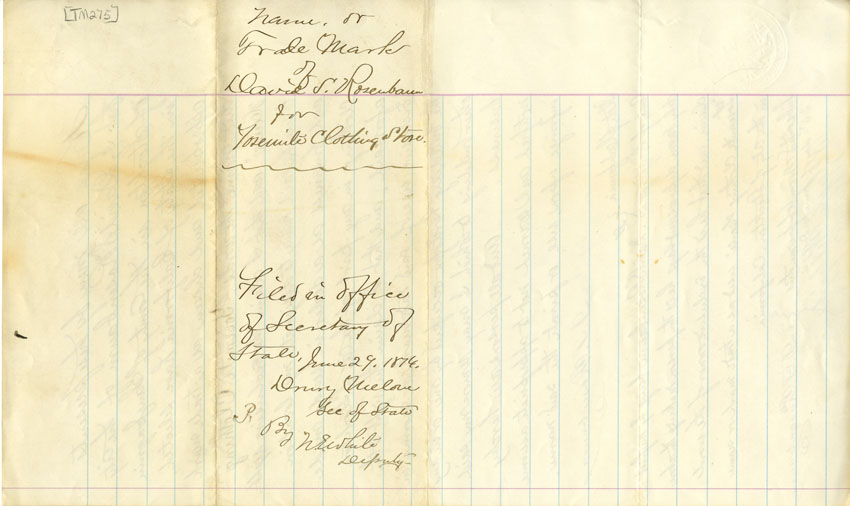 [TM275]
Name, or
Trade Mark
of
David S. Rosenbaum
for
Yosemite Clothing Store.
Filed in office
of Secretary of
State, June 29. 1874.
Drury Melone
Sec of State
P.
By
Deputy